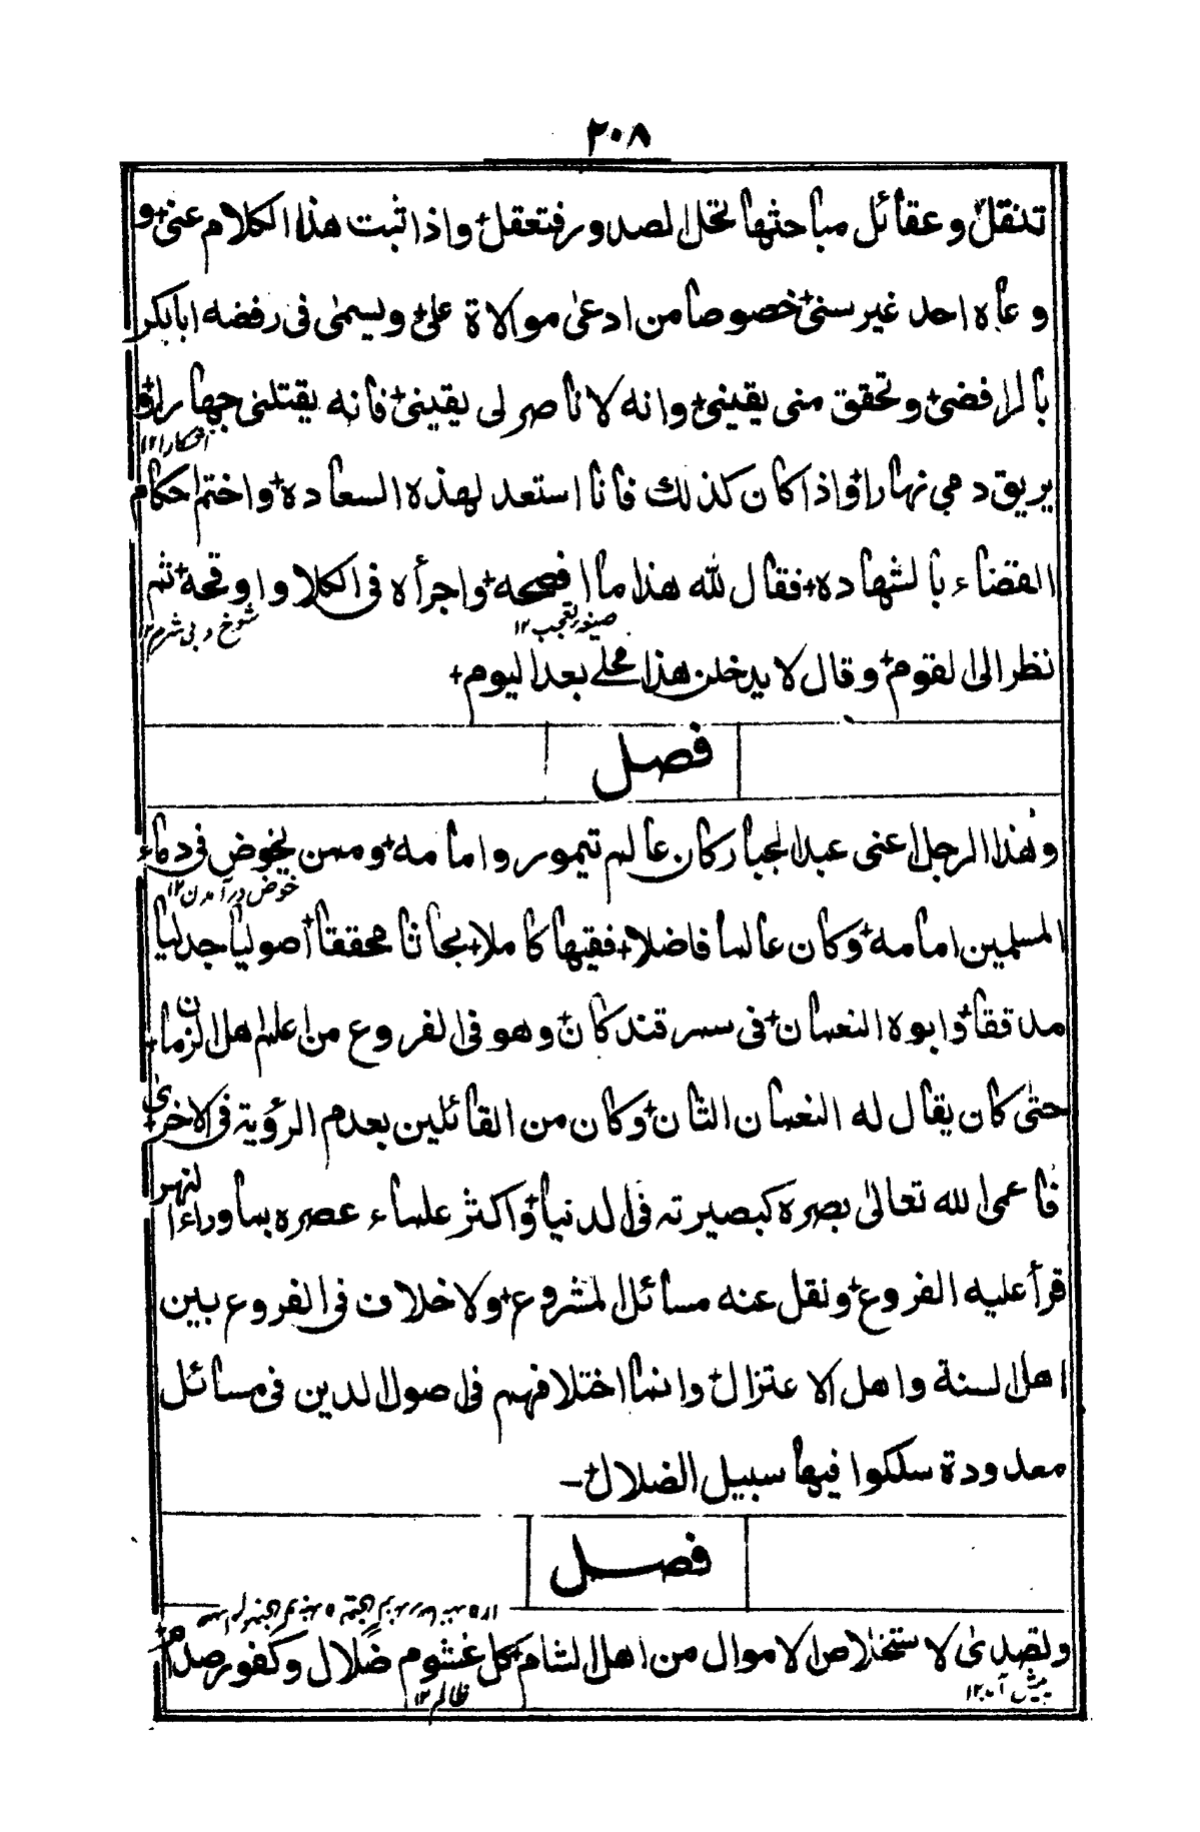 ٢٠٨
تنقل وعقائل مباحثها بحل الصدور فتعقل+ واذا ثبت هذا الكلام عنى+ و
وعاه احد غير سنى+ خصوصا من ادعى موالاة على+ ويسمى فى رفضه ابا بكر
بالرافضى+ وتحقق منى يقينى+ وانه لا ناصر لى يقينى+ فانه يقتلنى جهارا+ و
آشكارا ١٢
يريق دمى نهارا+ واذا كان كذلك فانا استعد لهذه السعادة+ واختم احكام
القضاء بالشهادة+ فقال لله هذا ما افصحه+ واجرأه فى الكلام واوقحه+ ثم
صيغه تعجب ١٢ شوخ و بى شرم ١٢
نظر الى القوم+ وقال لا يدخلن هذا على بعد اليوم+
فصل
وهذا الرجل اعنى عبد الجبار كان عالم تيمور وامامه+ وممن يخوض فى دماء
خوض درآمدن ١٢
المسلمين امامه+ وكان عالما فاضلا+ فقيها كاملا+ بحاثا محققا+ اصوليا جدليا
مدققا+ وابوه النعمان+ فى سمرقند كان+ وهو فى الفروع من اعلم اهل الزمان+
حتى كان يقال له النعمان الثان+ وكان من القائلين بعدم الرؤية فى الاخرى+
فاعمى الله تعالى بصره كبصيرته فى الدنيا+ واكثر علماء عصره بما وراء النهر
قرأ عليه الفروع+ ونقل عنه مسائل المشروع+ ولا خلاف فى الفروع بين
اهل السنة واهل الاعتزال+ وانما اختلافهم فى اصول الدين فى مسائل
معدودة سلكوا فيها سبيل الضلال+ـ
فصل
وتصدى لاستخلاص الاموال من اهل الشام+ كل غشوم ضلال وكفور صدام+
پيش آمد ١٢ ظالم ١٢